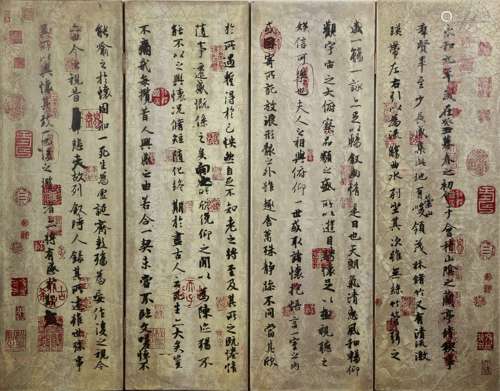 永和九年歲在癸丑暮春之初會于會稽山陰之蘭亭脩稧事
羣賢畢至少長咸集此地有崇山峻領茂林脩竹又有清流激
暎帶左右引以為流觴曲水列坐其次雖無絲竹管弦之
盛一觴一詠亦足以暢叙幽情是日也天朗氣清惠風和暢仰
觀宇宙之大俯察品類之盛所以遊目騁懷足以極視聽之
娛信可樂也夫人之相與俯仰一世或取諸懷抱悟言一室之內
或因寄所託放浪形骸之外雖趣舍萬殊靜躁不同當其欣
於所遇蹔得於己怏然自足不知老之將至及其所之既惓情
隨事遷感慨係之矣向之所欣俛仰之閒以為陳迹猶不
能不以之興懷況脩短隨化終期於盡古人云死生亦大矣豈
不痛哉每攬昔人興感之由若合一契未嘗不臨文嗟悼不
能喻之於懷固知一死生為虛誕齊彭殤為妄作後之視今
由今之視昔悲夫故列叙時人錄其所述雖世殊事
異所以興懷其致一也後之攬者亦將有感於斯文